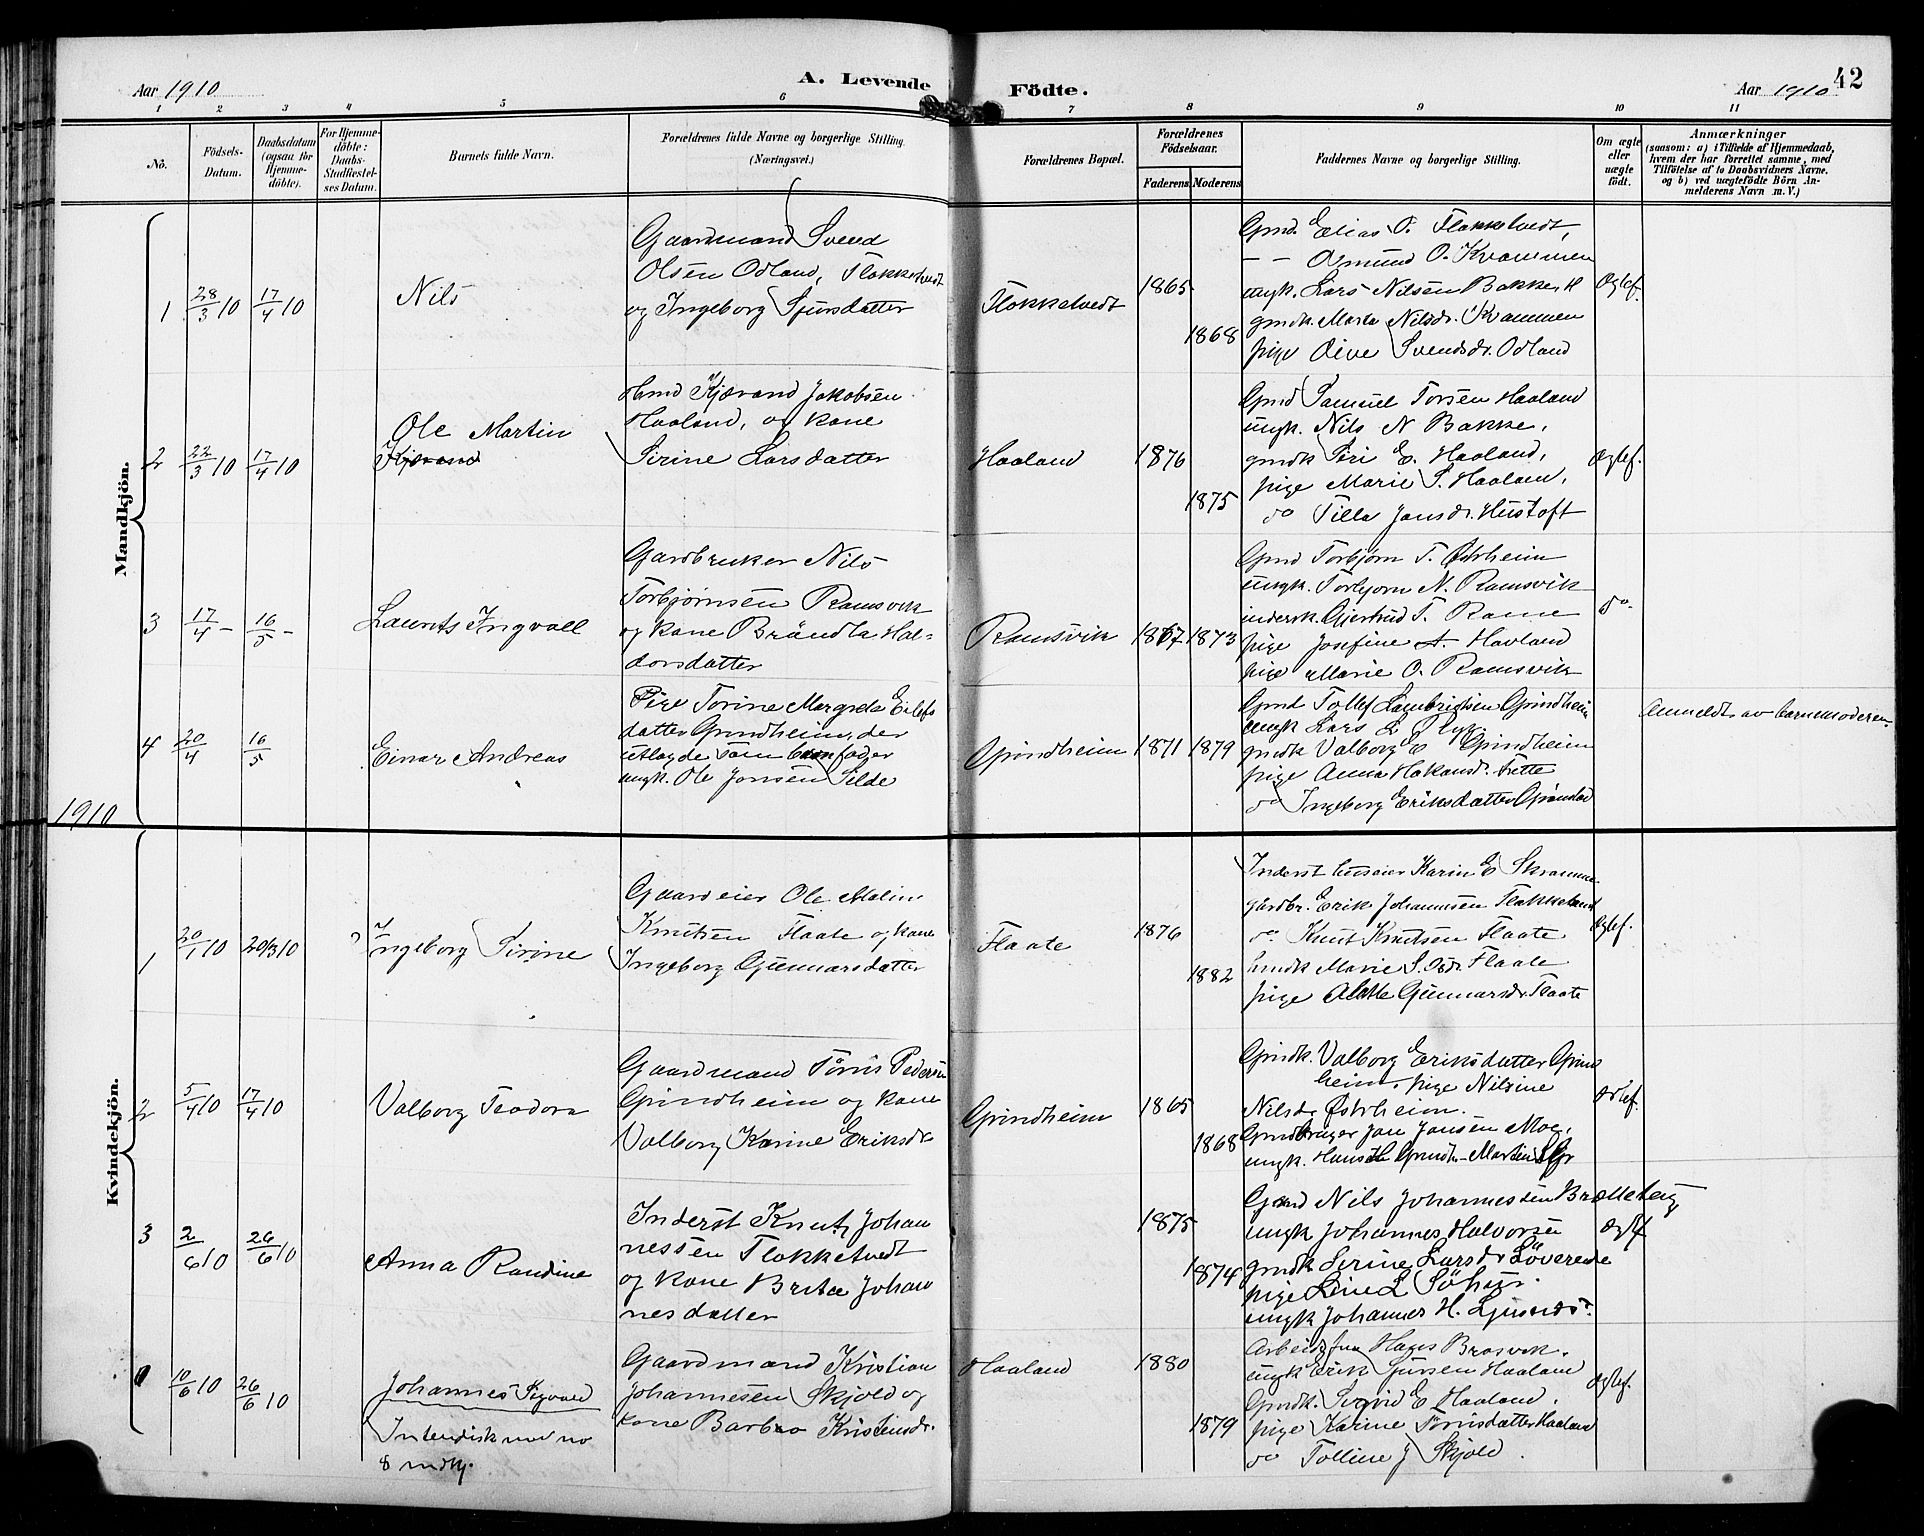 Aar 1910
A. Levende
Födte.
Aar 1910
42
1 2 3 4 5 6 7 8 9 10 11
No.
Födsels-
Datum.
Daabsdatum
(ogsaa for
Hjemme-
döbte).
For Hjemme-
döbte:
Daabs-
Stadfæstel-
ses Datum.
Barnets fulde Navn.
Forældrenes fulde Navne og borgerlige Stilling.
(Næringsvei.)
Forældrenes Bopæl.
Forældrenes
Födselsaar.
Faderens Moderens
Faddernes Navne og borgerlige Stilling.
Om ægte
eller
uægte
födt.
Anmærkninger
(saasom: a) i Tilfælde af Hjemmedaab,
hvem der har forrettet samme, med
Tilföielse af to Daabsvidners Navne,
og b) ved uægtefödte Börn An-
melderens Navn m. V.)
Mandkjön.
1
28/3 10
17/4 10
Nils
Gaardmand Svend
Olsen Odland, Flokketvedt
og Ingeborg Sjursdatter
Flokketvedt
1865
1868
Gmd. Elias O. Flokketvedt,
— — Osmund O. Kvammen
ungk. Lars Nilsen Bakke
gmdk. Marta Nilsdr. Kvammen
pige Svendsdr. Odland
Ægtef.
2
22/3 10
17/4 10
Ole Martin
Kjærand
Kjærand Jakobsen
Haaland, og kone
Sirine Larsdatter
Haaland
1876
1875
Gmd Samuel Torsen Haaland
ungk. Nils N Bakke,
gmdk Siri E. Haaland,
pige Marie S. Haaland,
do Tilla Jansdr. Hustoft
Ægtef.
3
17/4 –
16/5 –
Laurits Ingvall
Gardbruker Nils
Torbjørnsen Ramsvik
og kone Brändla Hal-
dorsdatter
Ramsvik
1867
1873
Gmd Torbjørn T. Østrheim
ungk. Torbjorn N. Ramsvik
inderk. Gjertrud T. Rame
pige Josefine A. Haaland
pige Marie O. Ramsvik
do
4
20/4
16/5
Einar Andreas
Pige Torine Margreta Eilefs
datter Grindheim, der
utlagde som barnfader
ungk. Ole Jonsen Silde
Grindheim
1871
1879
Gmd Tollef Lambrigtsen Grindheim
ungk Lars L Flyg
gmdk Valborg E Grindheim
pige Anna Hakansdr.
do Ingeborg Eriksdatter
Anmeldt av barnemoderen
1910
Kvindekjön.
1
20/1 10
20/3 10
Ingeborg Sirine
Gaardeier Ole Malin
Knutsen Flaate og kone
Ingeborg Gunnarsdatter
Flaate
1876
1882
Inderst huseier Karin E Skramme
gårdbr. Erik Johannesen Flokketvedt
do Knut Knutsen Flaate
Marie S. Flaate
pige Gunnarsdr. Flaate
Ægtef.
2
5/4 10
17/4 10
Valborg Teodora
Gaardmand Törris Pedersen
Grindheim og kone
Valborg Karine Eriksdr
Grindheim
1865
1868
Gmdk. Valborg Eriksdatter Grind
heim, pige Nilsine
Nilsdr Østrheim.
Gmdbruger Jan Jansen Mog,
ungk. Hans
Ægtef.
3
2/6 10
26/6 10
Anna Randine
Inderst Knut Johan
nessen Flokketvedt
og kone Brita Johan
nesdatter
1875
1874
Gmd Nils Johannessen Bratteberg
ungk Johannes Halvorsen
gmdk Serine Larsdr Löverede
pige Line L
ungk Johannes H.
Ægtf
10/6 10
26/6 10
Johannes Sigvald
Intendisk med no
8 mdkj.
Gaardmand Kristian
Johannesen Skjold og
kone Barbro Kristensdr.
Haaland
1880
1879
Hages Brosvik.
ungk Erik Sjursen Haaland
Gmdk. Sigrid E Haaland,
pige Karine Törrisdatter Haaland
do Tolline J Skjold.
Ægtef.